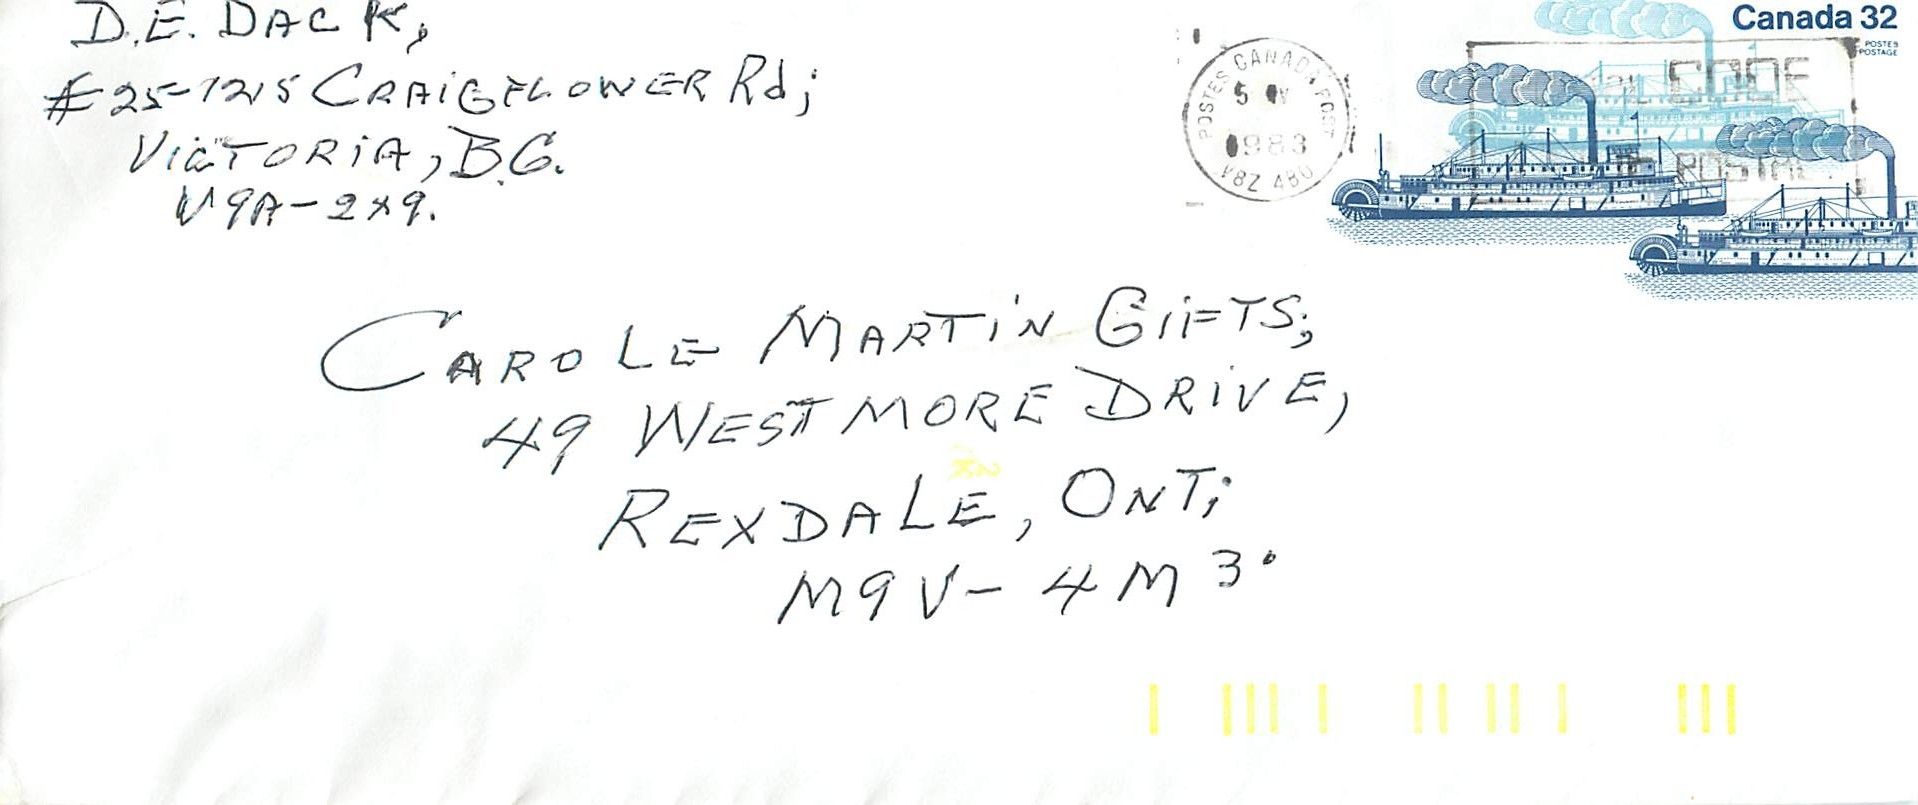 D.E. DACK,
#25-1215 CRAIGFLOWER Rd;
VICTORIA, B.C.
V9A-2X9.
Canada 32
POSTES
POSTAGE
POSTES CANADA POST
5
1983
V8Z 4B0
CODE
POSTAL
CAROLE MARTIN GIFTS;
49 WESTMORE DRIVE,
REXDALE, ONT;
M9V-4M3.